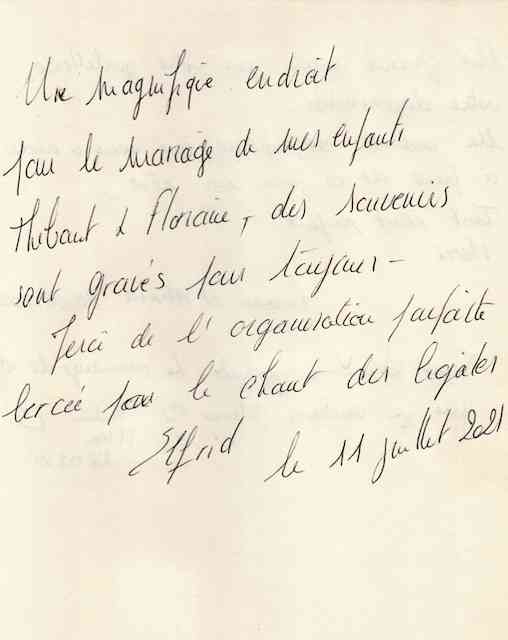 Une magnifique endroit
pour le mariage de mes enfants
Thibaut & Floriane, des souvenirs
sont gravés pour toujours -
Merci de l'organisation parfaite
bercée par le chant des cigales
Elfrid le 11 juillet 2021